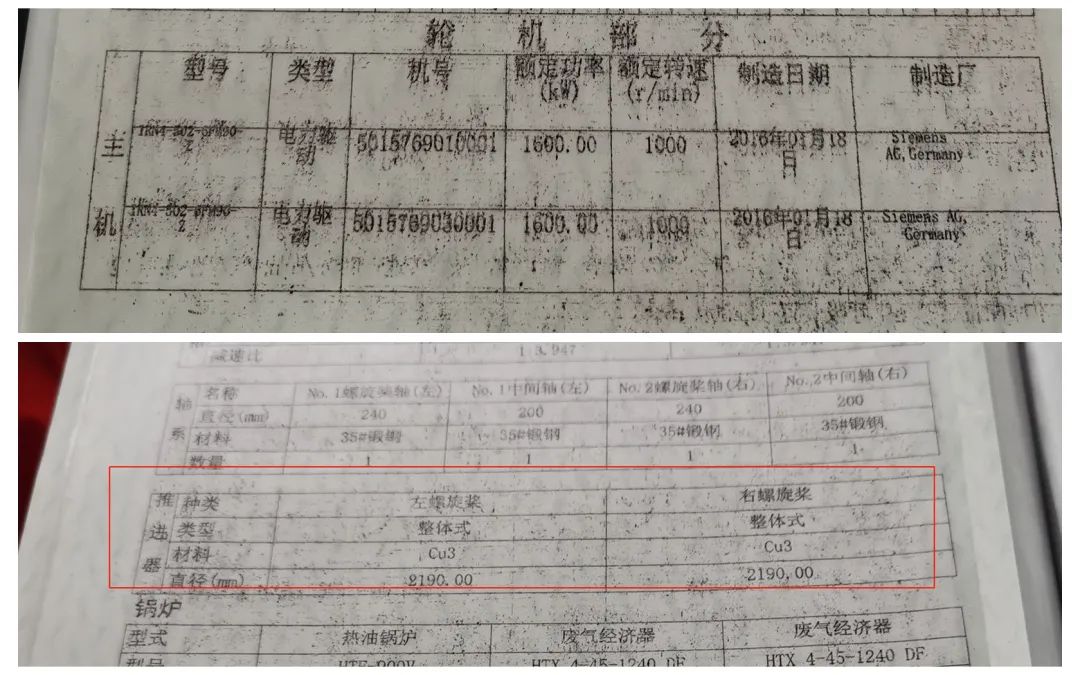 轮机部分
型号 类型 机号 额定功率(kW) 额定转速(r/min) 制造日期 制造厂
主机
电力驱动 5015769010001 1600.00 1000 2016年01月18日 Siemens AG,Germany
电力驱动 5015769030001 1600.00 1000 2016年01月18日 Siemens AG, Germany
减速比 1:3.947
轴系
名称 No.1螺旋桨轴(左) No.1中间轴(左) No.2螺旋桨轴(右) No.2中间轴(右)
直径(mm) 240 200 240 200
材料 35#锻钢 35#锻钢 35#锻钢 35#锻钢
数量 1 1 1 1
推进器
种类 左螺旋桨 右螺旋桨
类型 整体式 整体式
材料 Cu3 Cu3
直径(mm) 2190.00 2190.00
锅炉
型式 热油锅炉 废气经济器 废气经济器
型号 HTX 4-45-1240 DF HTX 4-45-1240 DF